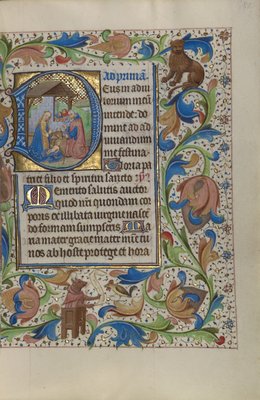 Ad primā.
Deus in adiu
torium meū
intende: do
mine ad ad
iuuandum
me festina.
Gloria pa
tri et filio et spiritui sancto.
Memento salutis auctor
quod nrī quondam cor
poris ex illibata uirgine nascē
do formam sumpseris Ma
ria mater gracie mater mīe tu
nos ab hoste protege et hora